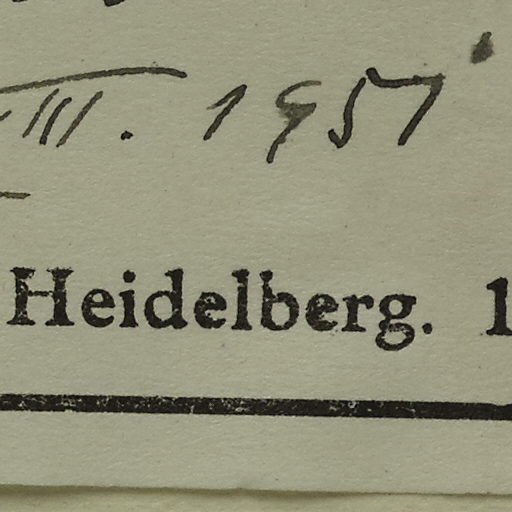 III. 1951
Heidelberg. 1